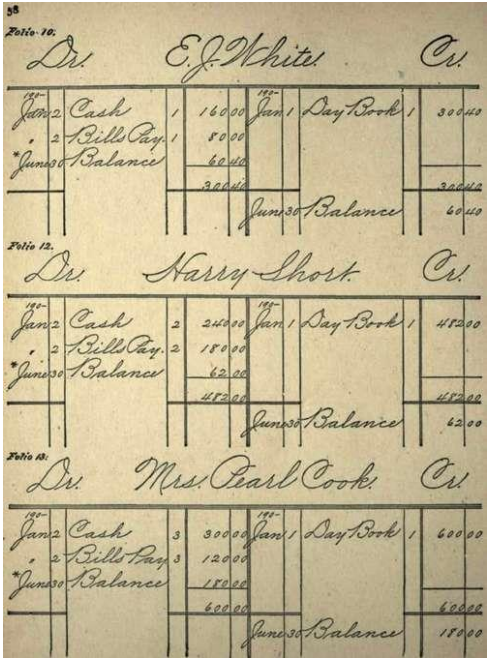 58
Folio 10.
Dr. E. J. White. Cr.
190- 190-
Jan 2 Cash 1 160 00 Jan 1 Day Book 1 300 40
" 2 Bills Pay. 1 80 00
*June 30 Balance 60 40
300 40 300 40
June 30 Balance 60 40
Folio 12.
Dr. Harry Short. Cr.
190- 190-
Jan 2 Cash 2 240 00 Jan 1 Day Book 1 482 00
" 2 Bills Pay. 2 180 00
*June 30 Balance 62 00
482 00 482 00
June 30 Balance 62 00
Folio 13:
Dr. Mrs. Pearl Cook. Cr.
190- 190-
Jan 2 Cash 3 300 00 Jan 1 Day Book 1 600 00
" 2 Bills Pay 3 120 00
*June 30 Balance 180 00
600 00 600 00
June 30 Balance 180 00